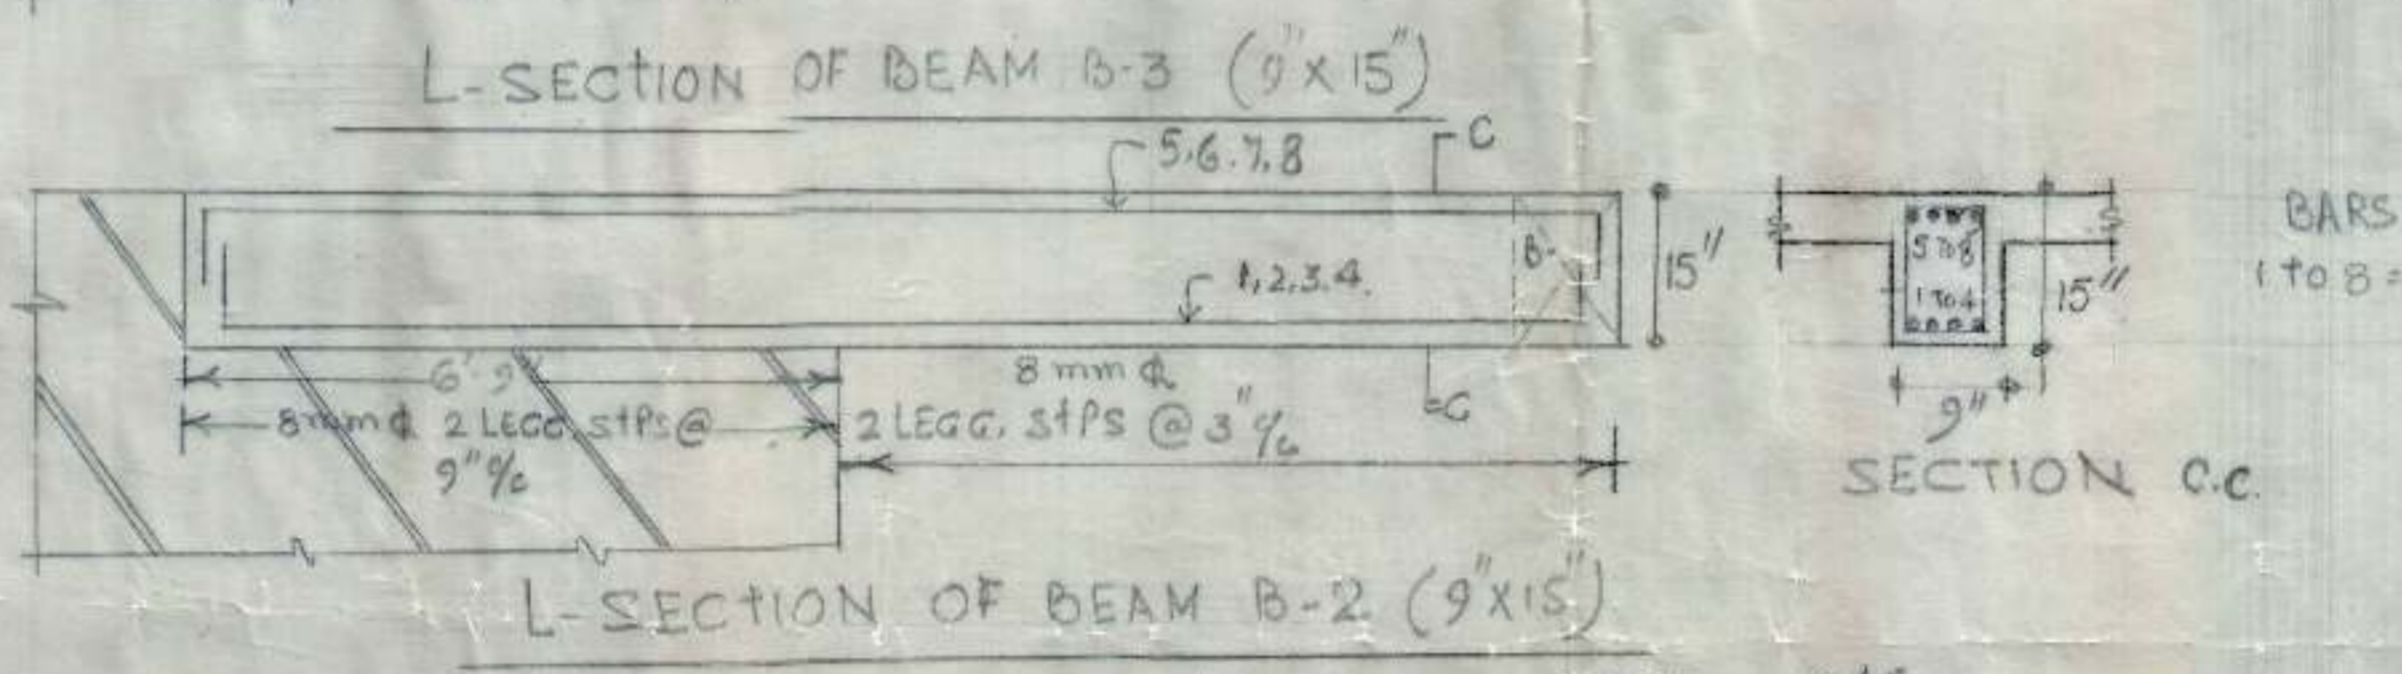 L-SECTION OF BEAM B-3 (9"X15")
5.6.7.8
C
B-
1,2,3,4.
15"
6'9"
8mmφ 2 LEGG. StPS @
9" c/c
8 mm φ
2 LEGG. StPS @ 3" c/c
C
5 TO 8
1 TO 4
15"
9"
SECTION C.C.
BARS
1 to 8 =
L-SECTION OF BEAM B-2 (9"X15")